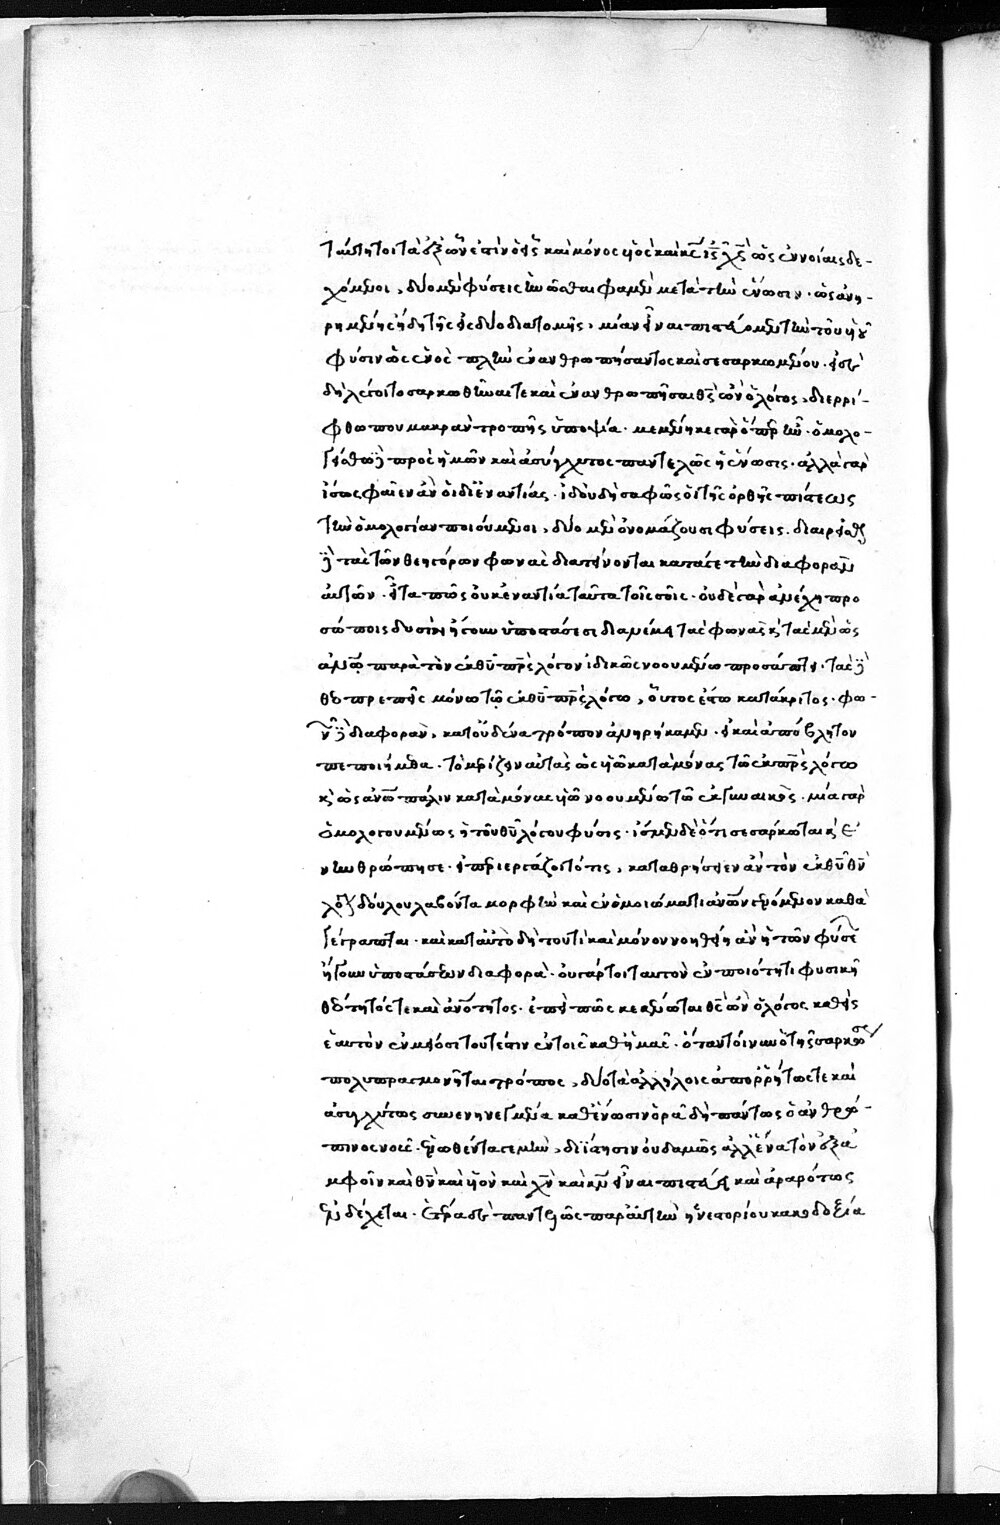 ταύτη τοι τὰ ἐξ ὧν ἐστὶν ὁ εἷς καὶ μόνος υἱὸς καὶ κς ις χς ὡς ἐν νοίαις δε-
χόμενοι, δύο μὲν φύσεις ἡνῶσθαι φαμὲν μετὰ τὴν ἕνωσιν. ὡς ἀνη-
ρημένης ἤδη τῆς εἰς δύο διατομῆς, μίαν εἶναι πιστεύομεν τὴν τοῦ υἱοῦ
φύσιν ὡς ἑνὸς πλὴν ἐνανθρωπήσαντος καὶ σεσαρκωμένου. εἰ δὲ
δὴ λέγοιτο σαρκωθῆναι τε καὶ ἐνανθρωπῆσαι θς ὢν ὁ λόγος, διερρί-
φθω που μακρὰν τροπῆς ὑποψία. μεμένηκε γὰρ ὅπερ ἦν. ὁμολο-
γείσθω δὲ πρὸς ἡμῶν καὶ ἀσύγχυτος παντελῶς ἡ ἕνωσις. ἀλλὰ γὰρ
ἴσως φαῖεν ἂν οἱ δι' ἐναντίας. ἰδοὺ δὴ σαφῶς οἱ τῆς ὀρθῆς πίστεως
τὴν ὁμολογίαν ποιούμενοι, δύο μὲν ὀνομάζουσι φύσεις. διαιρεῖσθαι
δὲ τὰς τῶν θεηγόρων φωνὰς διατείνονται κατά γε τὴν διαφορὰν
αὐτῶν. εἶτα πῶς οὐκ ἐναντία ταῦτα τοῖς σοῖς. οὐδὲ γὰρ ἀνέχη προ
σώποις δυσὶν ἤγουν ὑποστάσεσι διανέμειν τὰς φωνὰς κ τὰς μὲν ὡς
ανω παρὰ τὸν ἐκ θυ πρς λόγον ἰδικῶς νοουμένω προσάπτει. τὰς δὲ
θεοπρεπεῖς μόνω τῶ ἐκ θυ πρς λόγω, οὗτος ἔστω κατάκριτος. φω-
νῶν δὲ διαφορὰν, κατ' οὐδένα τρόπον ἀνηρήκαμεν. εἰ καὶ ἀπόβλητον
πεποιήμεθα. τὸ μερίζειν αὐτὰς ὡς υἱῶ κατὰ μόνας τῶ ἐκ πρς λόγω
κ ὡς ανω πάλιν κατὰ μόνας υἱῶ νοουμένω τῶ ἐκ γυναικός. μία γὰρ
ὁμολογουμένως ἡ τοῦ θυ λόγου φύσις. ἴσμεν δὲ ὅτι σεσάρκωται κ ἐ
νηνθρώπησε. εἰ περιεργάζοιτό τις, καταθρήσειεν ἂν τὸν ἐκ θυ θν
λόγον δούλου λαβόντα μορφὴν καὶ ἐν ὁμοιώματι ανων γενόμενον καθὰ
γέγραπται. καὶ κατ' αὐτὸ δὴ τουτὶ καὶ μόνον νοηθείη ἂν ἡ τῶν φύσεων
ἤγουν ὑποστάσεων διαφορά. οὐ γάρ τοι ταυτὸν ἐν ποιότητι φυσικῇ
θεότητός τε καὶ ανοτητος. ἐπεὶ πῶς κεκένωται θς ὢν ὁ λόγος καθεὶς
ἑαυτὸν ἐν μείοσι τουτέστιν ἐν τοῖς καθ' ἡμᾶς. ὅταν τοίνυν ὁ τῆς σαρκώσεως
πολυπραγμονῆται τρόπος, δύο τὰ ἀλλήλοις ἀπορρήτως τε καὶ
ἀσυγχύτως συνενηνεγμένα καθ' ἕνωσιν ὁρᾶ δὴ πάντως ὁ ἀνθρώ-
πινος νοῦς. ἑνωθέντα γε μὴν, διΐστησιν οὐδαμῶς ἀλλ' ἕνα τὸν ἐξ ἀ
μφοῖν καὶ θν καὶ υἱὸν καὶ χν καὶ κν εἶναι πιστεύει καὶ ἀραρότως
εἰσδέχεται. ἑτέρα δὲ παντελῶς παρὰ αὐτὴν ἡ νεστορίου κακοδοξία